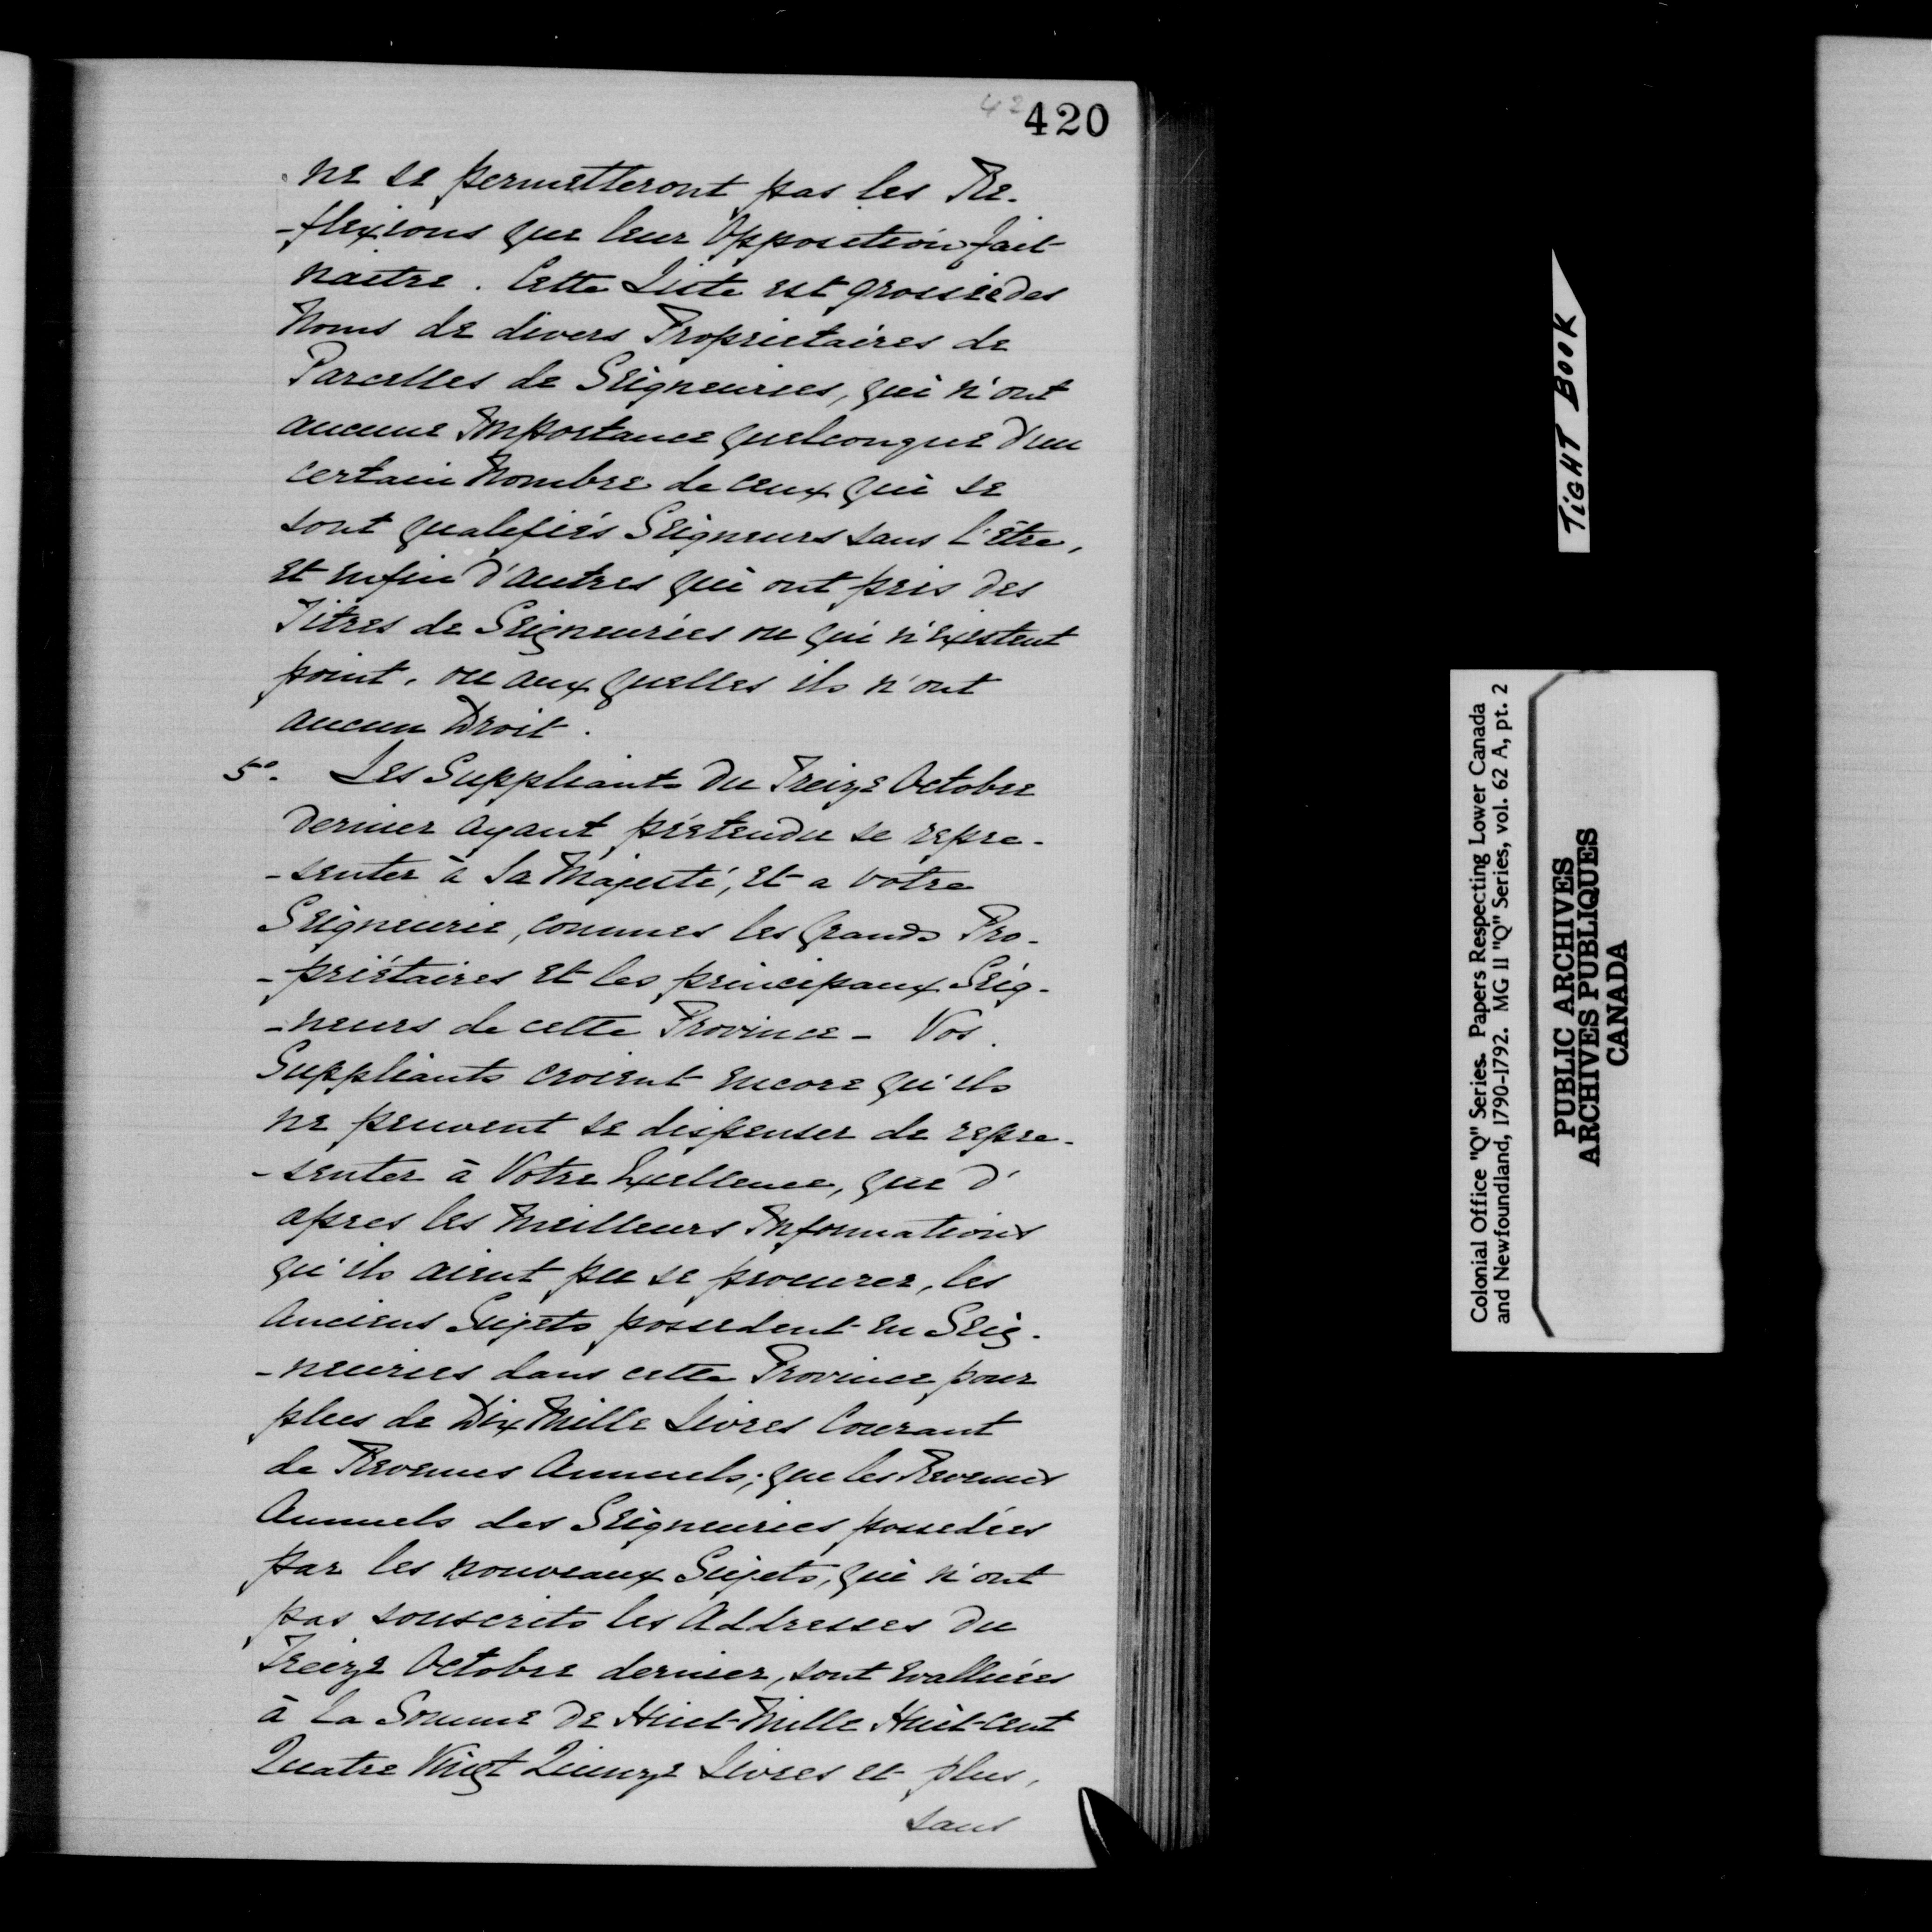 42
420
ne se permetteront pas les Re-
-flexions que leur Opposition fait
naitre. Cette Liste est grossie des
Noms de divers Proprietaires de
Parcelles de Seigneuries, qui n'ont
aucune Importance quelconque d'un
certain Nombre de ceux qui se
sont qualifiés Seigneurs sans l'être,
et enfin d'autres qui ont pris des
Titres de Seigneuries ou qui n'existent
point, ou aux quelles ils n'ont
aucun Droit.
5°. Les Suppliants du Treize Octobre
dernier ayant prétendu se repre-
-senter à Sa Majesté, et a votre
Seigneurie, commes les Grands Pro-
-priétaires et les principaux Seig-
-neurs de cette Province - Vos
Suppliants croient encore qu'ils
ne peuvent se dispenser de repre-
-senter à Votre Excellence, que d'
apres les meilleurs Informations
qu'ils aient pu se procurer, les
Anciens Sujets possedent en Seig-
-neuries dans cette Province pour
plus de Dix Mille Livres Courant
de Revenus Annuels; que les Revenus
Annuels des Seigneuries possedées
par les nouveaux Sujets, qui n'ont
pas souscrits les Addresses du
Treize Octobre dernier, sont evalluées
à la Somme de Huit-Mille Huit-cent
Quatre Vingt Quinze Livres et plus,
sans
TIGHT BOOK
Colonial Office "Q" Series. Papers Respecting Lower Canada
and Newfoundland, 1790-1792. MG 11 "Q" Series, vol. 62 A, pt. 2
PUBLIC ARCHIVES
ARCHIVES PUBLIQUES
CANADA